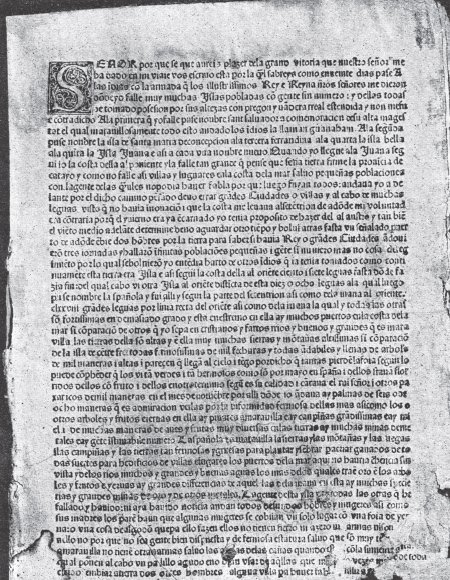 SEÑOR por que se que aureis plazer dela grand vitoria que nuestro señor me
ha dado en mi viaie vos escriuo esta por la qual sabreys como en ueinte dias pase A
las idias cō la armada q̃ los illustrissimos Rey e Reyna ños señores me dieron
dōde yo falle muy muchas Islas pobladas cō gente sin numero : y dellas todas
he tomado posesion por sus altezas con pregon y uādera real estendida y non mefu
e cōtradicho Ala primera q̃ yo falle puse nombre sant saluador a comemoracion desu alta mages
tat el qual marauillosamente todo esto andado los idios la llaman guanahani Ala segūda
puse nombre la isla de santa maria deconcepcion ala tercera ferrandina ala quarta la isla bella
ala quita la Isla Iuana e asi a cada vna nombre nueuo Quando yo llegue ala Iuana seg
ui io la costa della al poniente yla falle tan grande q̃ pense que seria tierra firme la prouicia de
catayo y como no falle asi villas y luguares enla costa dela mar saluo pequeñas poblaciones
con lagente delas q̃les nopodia hauer fabla por que luego fuyan todos: andaua yo a de
lante por el dicho camino pēsado deno errar grādes Ciudades o villas y al cabo de muchas
leguas visto q̃ no hauia inouacion i que la costa me leuaua alsetētrion de adōde mi voluntad
era cōtraria porq̃ el yuierno era ya ēcarnado yo tenia proposito de hazer del al austro y tan biē
el viēto medio adelāte determine deno aguardar otro tiepo y bolui atras fasta vn señalado puer
to de adōde ēbie dos hōbres por la tierra para saber si hauia Rey o grādes Ciudades ādoui
erō tres iornadas yhallarō ifinitas poblaciones pequeñas i gēte si numero mas no cosa deeg
imiēto por lo qual se boluierō yo entendia harto de otros idios q̃ ia tenia tomados como conti
nuamēte esta tierra era Isla e asi segui la costa della al oriēte ciento i siete leguas fasta dōde fa
zia fin: del qual cabo vi otra Isla al oriēte disticta de esta diez o ocho leguas ala qual luego
puse nombre la spañola y fui alli y segui la parte del setentrion asi como dela iuana al oriente.
clxxviii grādes leguas por linia recta del oriēte asi como dela iuana la qual y todas las otras
sō fortissimas en demasiado grado y esta enestremo en ella ay muchos puertos enla costa dela
mar si cōparacion de otros q̃ yo sepa en cristianos y fartos rios y buenos y grandes q̃ es mara
villa las tierras della sō altas y ē ella muy muchas sierras y mōtañas altissimas si cōparaciō
de la isla de cētre frē todas fermosissimas de mil fechuras y todas ādables y llenas de arbols
de mil maneras i altas i pareçen q̃ llegā al cielo i tēgo pordicho q̃ iamas pierdē lafoia segun lo
puede cōphēder q̃ los vi tā verdes i tā hermosos como sō por mayo en spaña i dellos stauā flor
ridos dellos cō fruto i dellos enotrotermino segū es su calidad i cātaua el rui señor i otros pa
xaricos demil maneras en el mes de nouiēbre por alli dōde io ādaua ay palmas de seis ode
ocho maneras q̃ es admiracion verlas por la diformidad fermosa dellas mas asicomo los o
otros arboles y frutos eieruas en ella ay pinares amarauilla eay canpiñas grādissimas eay mi
el i de muchas maneras de aues y frutas muy diuersas enlas tierras ay muchas minas deme
tales eay gēte istimabile numero Laspañola es marauilla lasierras ylas mōtañas y las uegas
ilas campiñas y las tierras tan fermosas ygruesas para plantar ysēbrar pacriar ganados deto
das suertes para hedificios de villas elugares los puertos dela mar aqui no hauria chrencia sin
vista ydelos rios muchos y grandes y buenas aguas los mas delos quales traē oro ē los arbo
les y frutos e yeruas ay grandes differencias de aquel las dela iuana en esta ay muchas specie
rias y grandes minas de oro y de otros metales. Lagente desta isla
fallado y hauido: ni aya hauido noticia andan todos desnudos hōbres y mugeres asi como
sus madres los paren haun que algunas mugeres se cobian vn solo lugar cō vna foia de yer
ua: o vna cosa de algodō quepa ello fazen ellos no tienen fierro ni azero ni armas nison
nello no por que no sea gente bien dispuesta y de fermosa estatura saluo que sō muy
amarauilla no tienē otras armas saluo las delas cañas quando
qual ponen al cabo vn palillo agudo eno vsan de aqllas que
embiar atierra dos o tres hombres alguna villa pa hauer